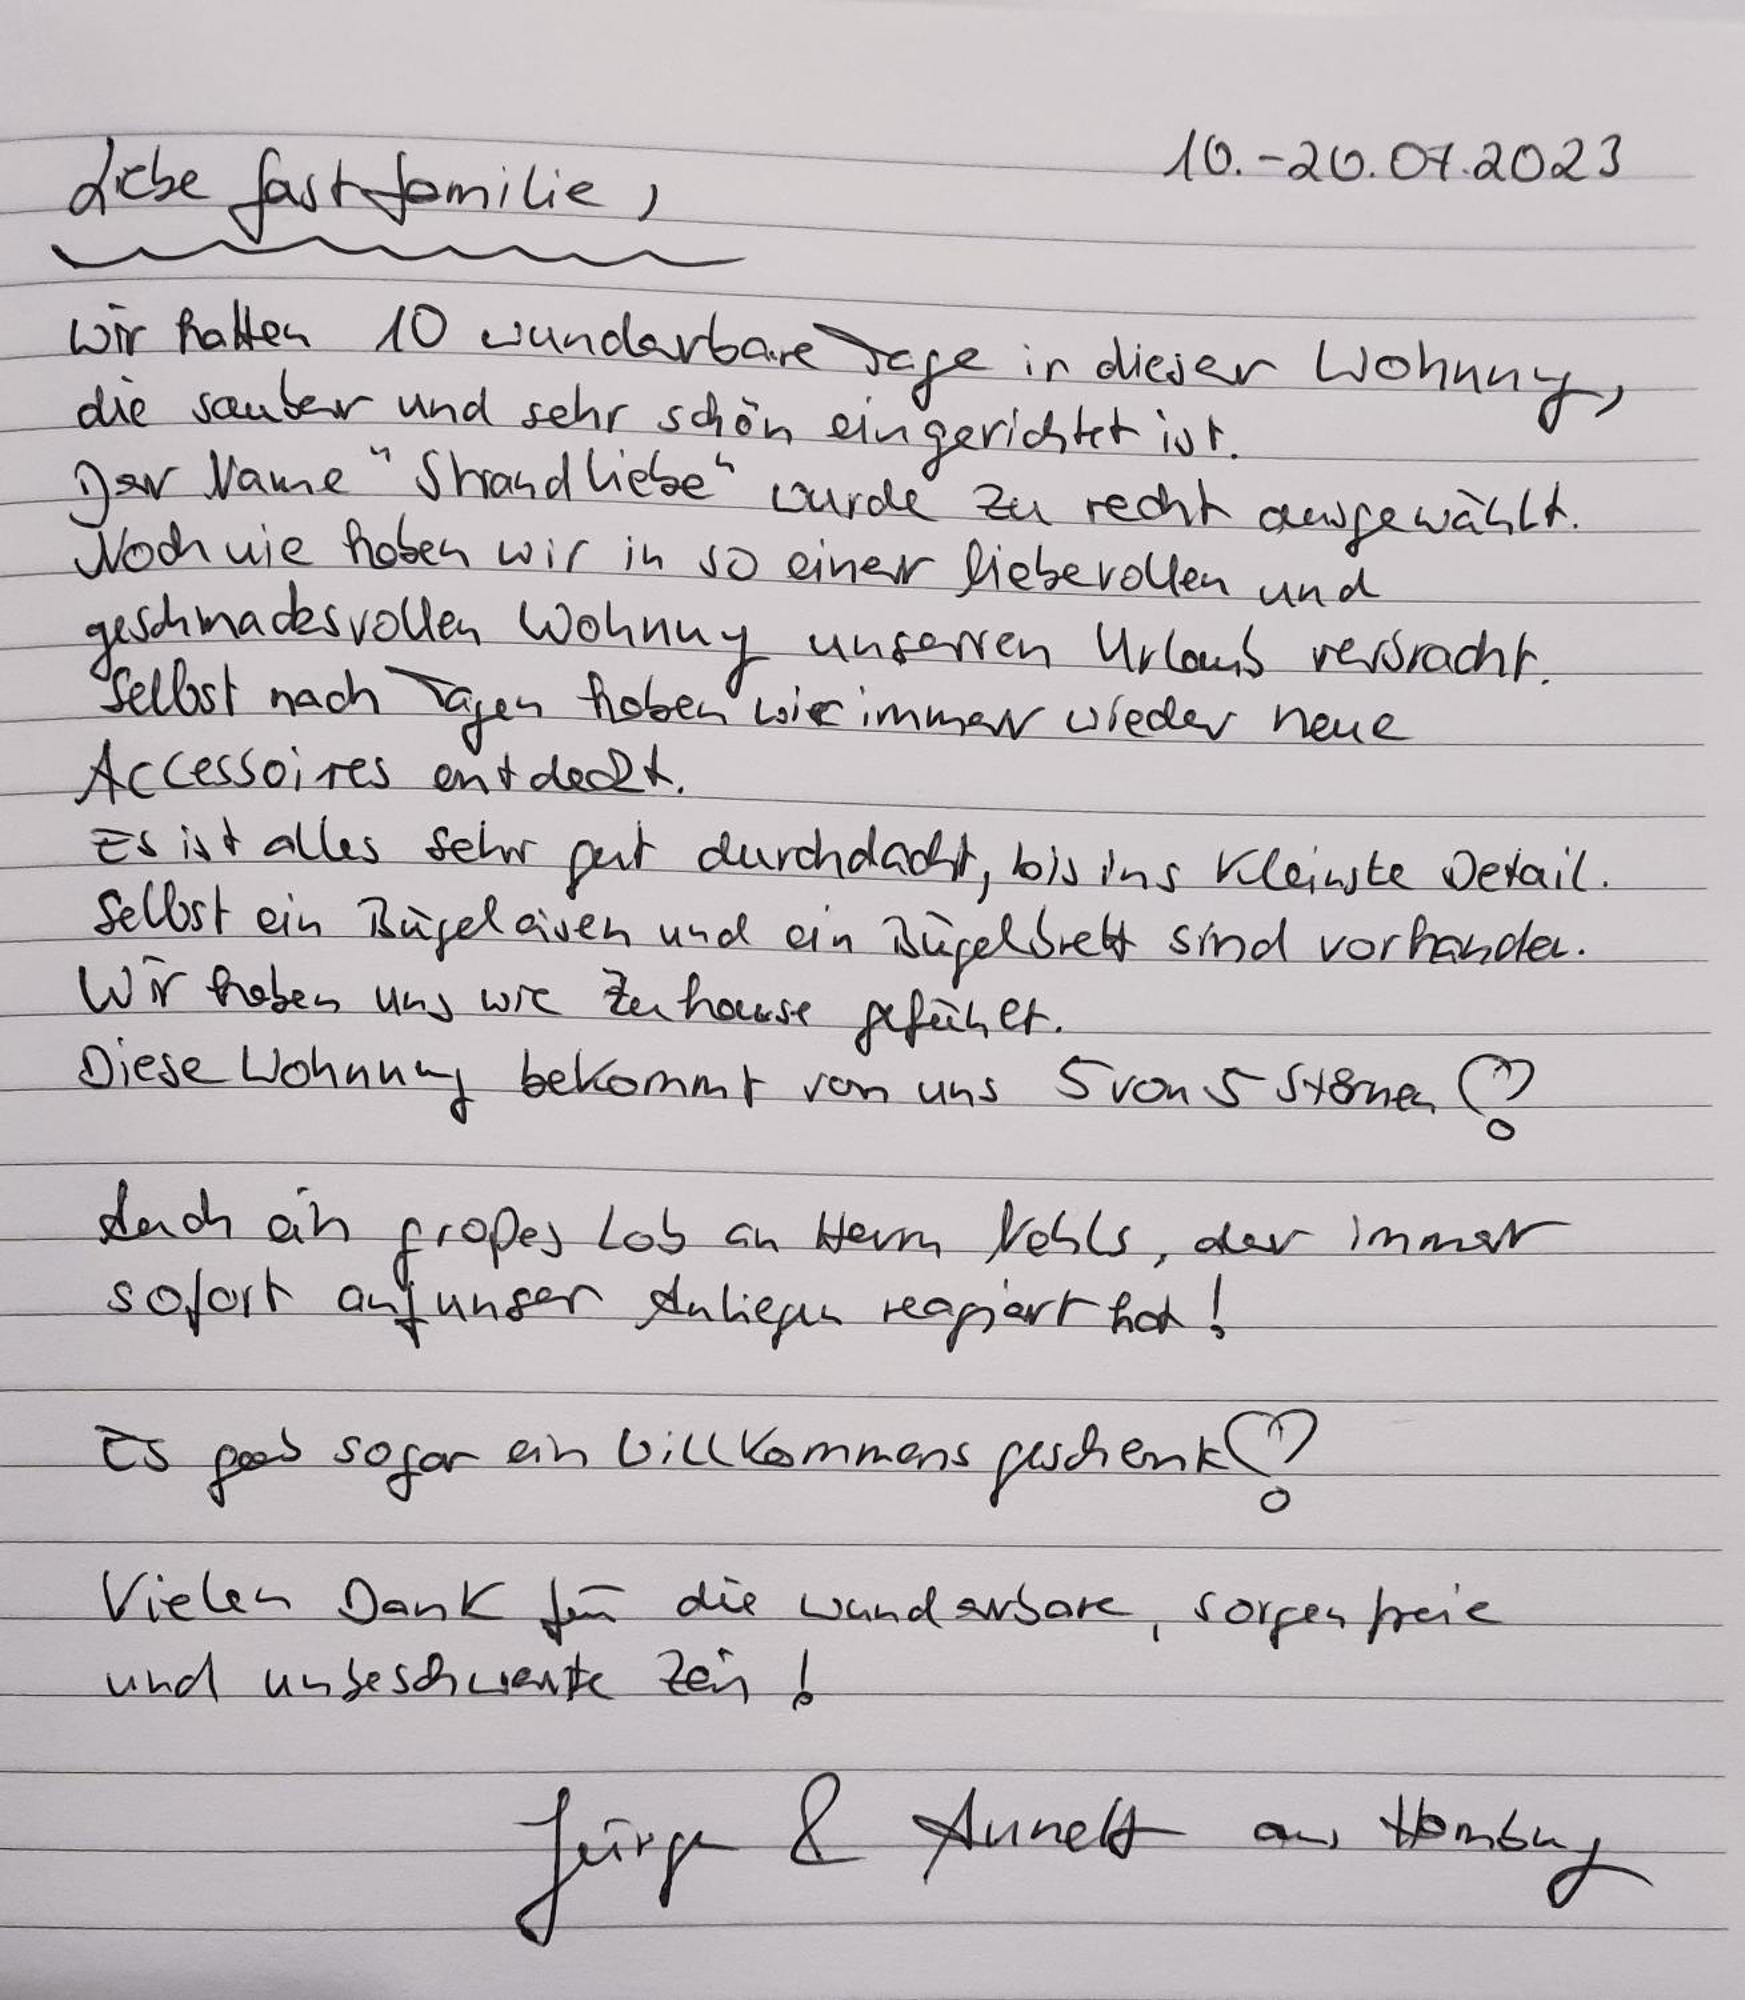 10.-20.07.2023
Liebe Gastfamilie,
Wir hatten 10 wunderbare Tage in dieser Wohnung,
die sauber und sehr schön eingerichtet ist.
Der Name "Strandliebe" wurde zu recht ausgewählt.
Noch nie haben wir in so einer liebevollen und
geschmacksvollen Wohnung unseren Urlaub verbracht.
Selbst nach Tagen haben wir immer wieder neue
Accessoires entdeckt.
Es ist alles sehr gut durchdacht, bis ins kleinste Detail.
Selbst ein Bügeleisen und ein Bügelbrett sind vorhanden.
Wir haben uns wie Zuhause gefühlt.
Diese Wohnung bekommt von uns 5 von 5 Sternen
Auch ein großes Lob an Herrn Nehls, der immer
sofort auf unser Anliegen reagiert hat!
Es gab sogar ein Willkommensgeschenk
Vielen Dank für die wunderbare, sorgenfreie
und unbeschwerte Zeit!
Jürgen & Annett aus Hamburg